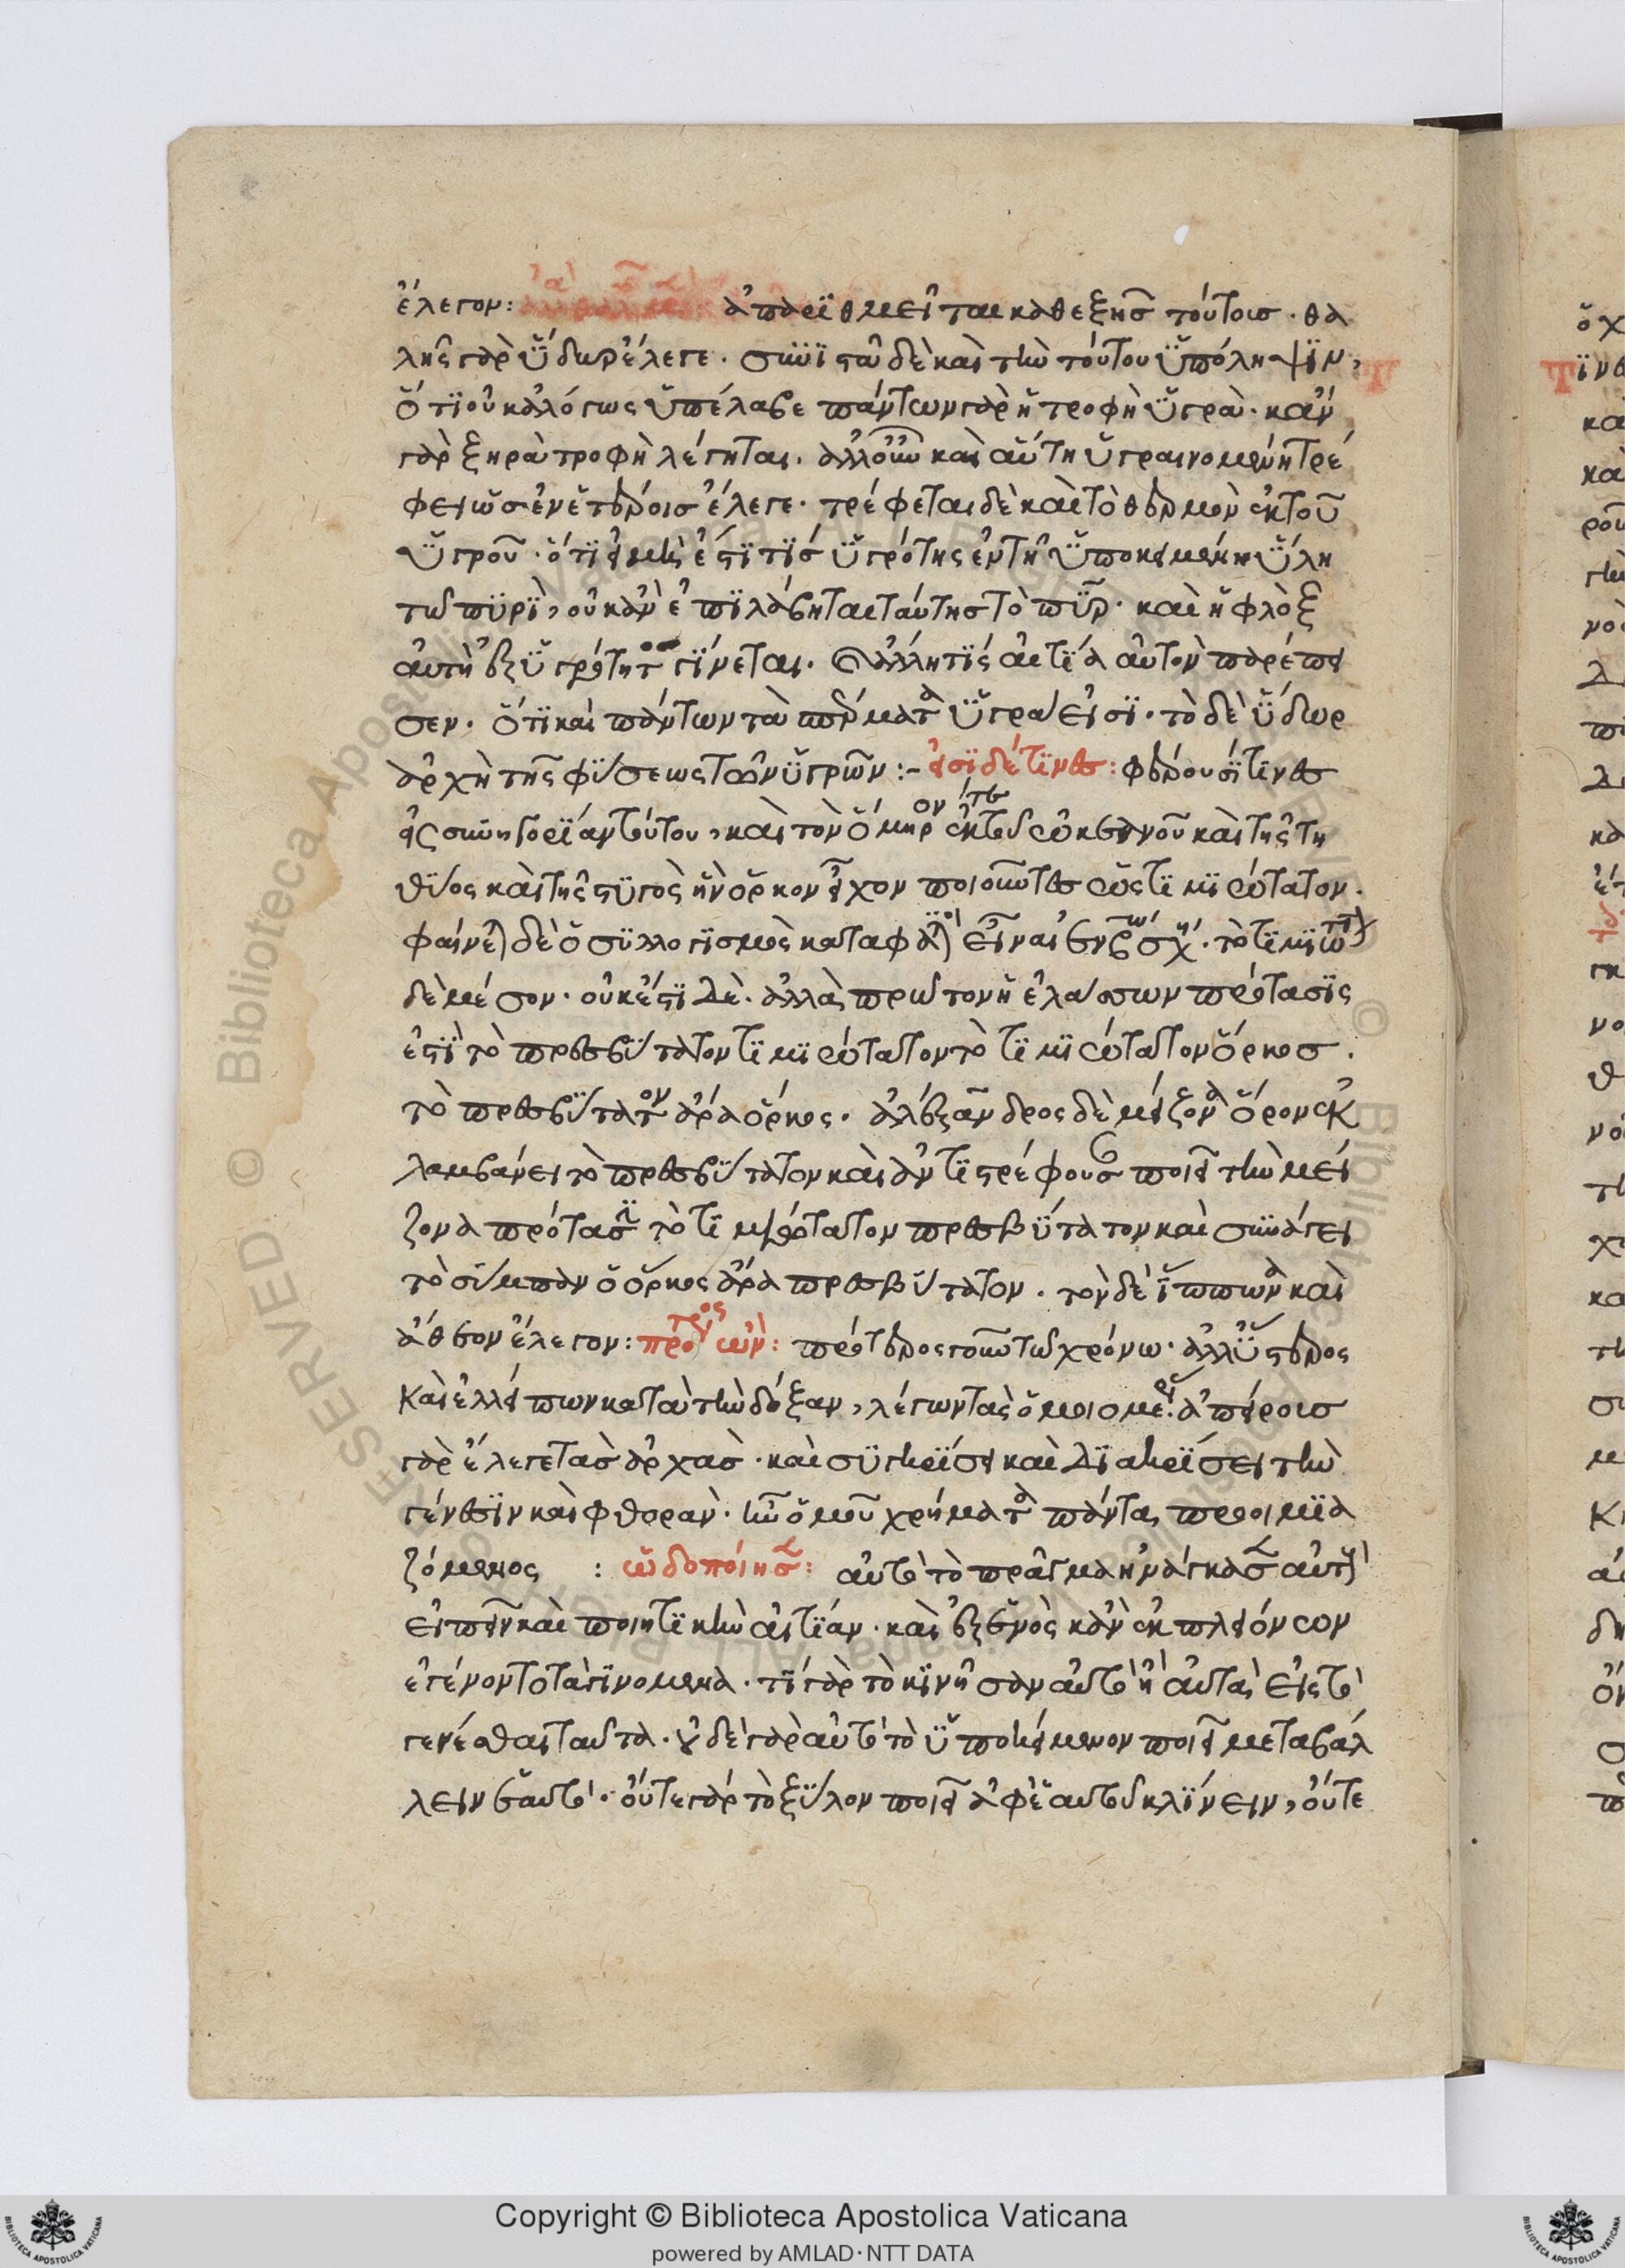 ἔλεγον: ἀπαριθμεῖται καθεξῆς τούτοις· θα
λῆς γὰρ ὕδωρ ἔλεγε· συνιστᾷ δὲ καὶ τὴν τούτου ὑπόληψιν,
ὅτι οὐκ ἀλόγως ὑπέλαβε πάντων γὰρ ἡ τροφὴ ὑγρά· κἂν
γὰρ ξηρὰ τροφὴ λέγηται· ἀλλ' οὖν καὶ αὕτη ὑγραινομένη τρέ
φει ὡς ἐν ἑτέροις ἔλεγε· τρέφεται δὲ καὶ τὸ θερμὸν ἐκ τοῦ
ὑγροῦ· ὅτι εἰ μὴ ἐστί τις ὑγρότης ἐν τῇ ὑποκειμένῃ ὕλῃ
τῷ πυρί, οὐκ ἂν ἐπιλάβηται ταύτης τὸ πῦρ· καὶ ἡ φλὸξ
αὐτὴ ἐξ ὑγρότητος γίνεται· ἄλλη τίς αἰτία αὐτὸν παρέπει
σεν· ὅτι καὶ πάντων τὰ σπέρματα ὑγρά εἰσι· τὸ δὲ ὕδωρ
ἀρχὴ τῆς φύσεως τῶν ὑγρῶν :- εἰσὶ δέ τινες: φέρουσί τινες
εἰς συνηγορίαν τούτου, καὶ τὸν ὅμηρον ἐκ τοῦ ὠκεανοῦ καὶ τῆς τη
θύος καὶ τῆς στυγὸς ἣν ὅρκον εἶχον ποιοῦντες ὥς τιμιώτατον·
φαίνεται δὲ ὁ συλλογισμὸς κατὰ φιλ εἶναι ἐν β σχ· τὸ τιμιώτ
δὲ μέσον· οὐκ ἔστι δὲ· ἀλλὰ πρῶτον ἡ ἐλάσσων πρότασις
ἐστὶ τὸ πρεσβύτατον τιμιώτατον τὸ τιμιώτατον ὅρκος·
τὸ πρεσβύτατον ἄρα ὅρκος· ἀλέξανδρος δὲ μείζονα ὅρον ἐκ
λαμβάνει τὸ πρεσβύτατον καὶ ἀντιστρέφουσαν ποιεῖ τὴν μεί
ζονα πρότασιν τὸ τιμιώτατον πρεσβύτατον καὶ συνάγει
τὸ σύμπαν ὁ ὅρκος ἄρα πρεσβύτατον· τὸν δὲ ἵππωνα καὶ
ἄθεον ἔλεγον: πρότερος ὢν: πρότερος γοῦν τῷ χρόνῳ· ἀλλ' ὕστερος
καὶ ἐλλείπων κατὰ τὴν δόξαν, λέγων τὰς ὁμοιομερεῖς· ἀπείροις
γὰρ ἔλεγε τὰς ἀρχὰς· καὶ συγκρίσει καὶ διακρίσει τὴν
γένεσιν καὶ φθοράν· ἦν ὁμοῦ χρήματα πάντα, προοιμια
ζόμενος : ὡδοποίησεν: αὐτὸ τὸ πρᾶγμα ἠνάγκασεν αὐτοὺς
εἰπεῖν καὶ ποιητικὴν αἰτίαν· καὶ ἐξ ἑνὸς κἂν ἐκ πλειόνων
ἐγένοντο τὰ γινόμενα· τί γὰρ τὸ κινῆσαν αὐτὸ ἢ αὐτὰ εἰς τὸ
γενέσθαι ταῦτα· οὐδὲ γὰρ αὐτὸ τὸ ὑποκείμενον ποιεῖ μεταβάλ
λειν ἑαυτό· οὔτε γὰρ τὸ ξύλον ποιεῖ ἀφ' ἑαυτοῦ κλίνειν, οὔτε
Copyright © Biblioteca Apostolica Vaticana
powered by AMLAD·NTT DATA